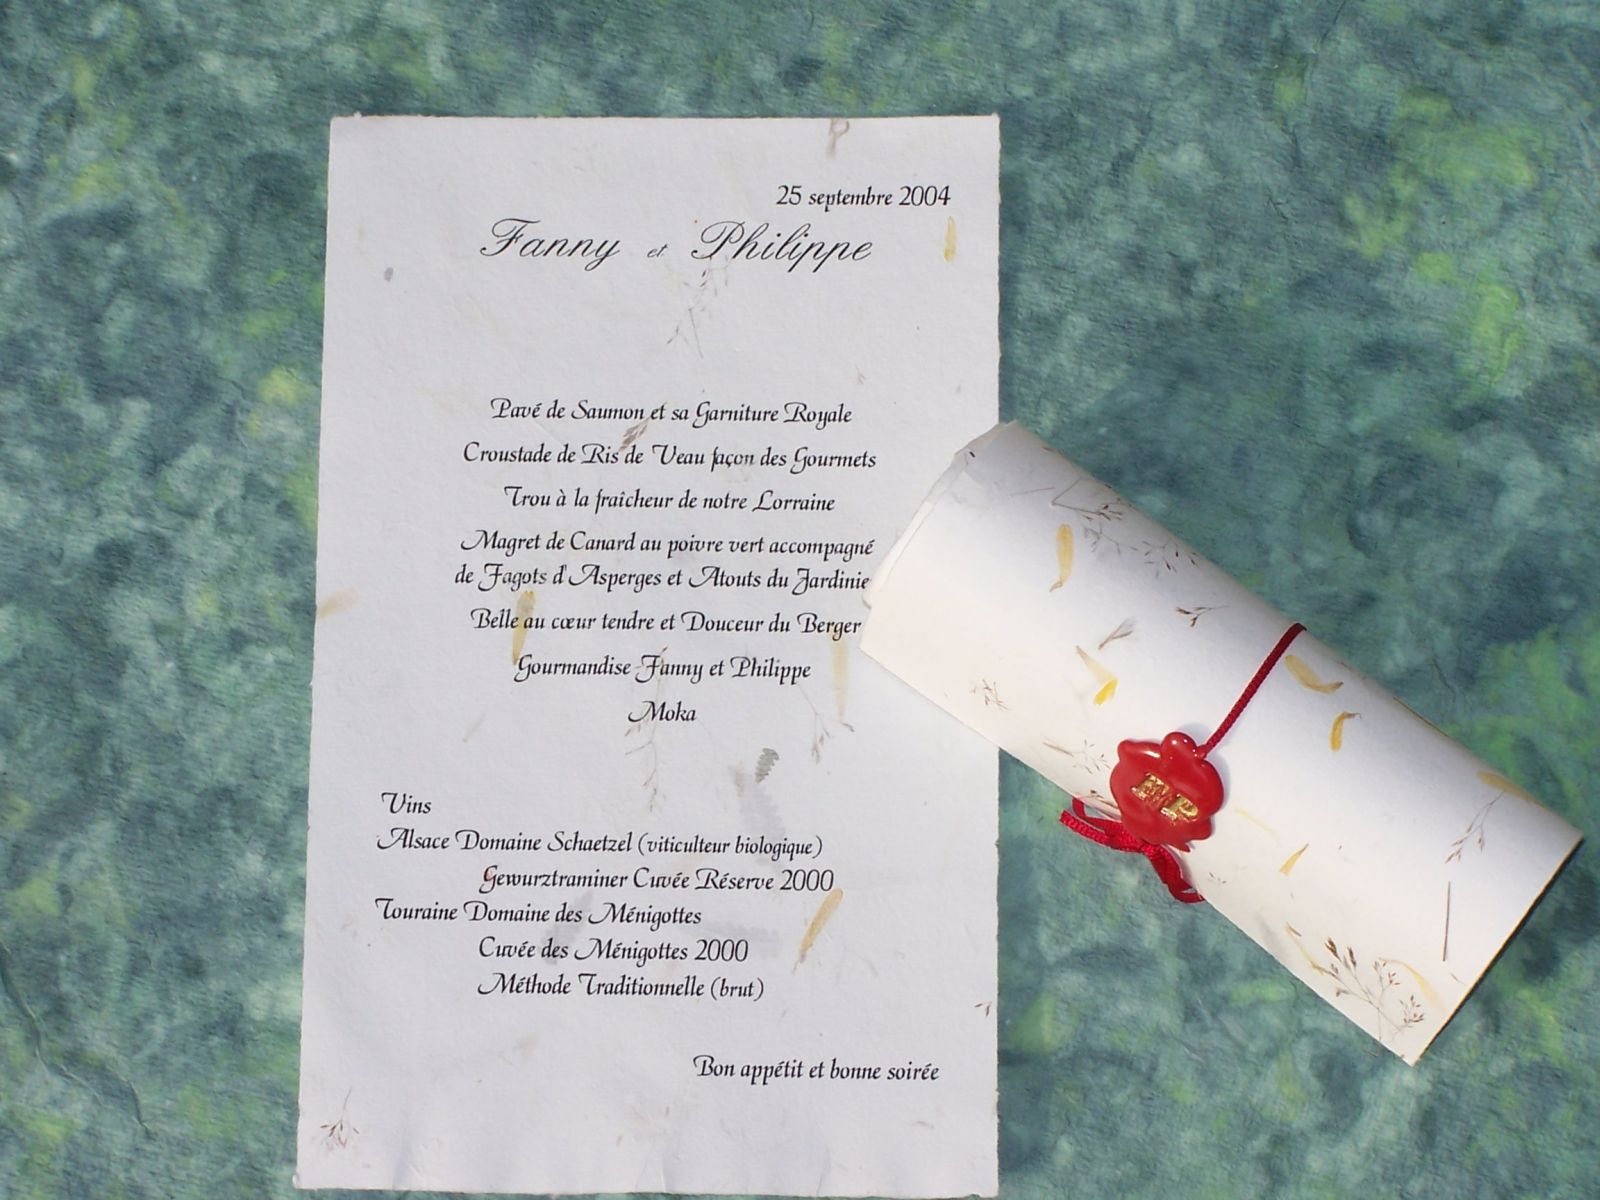 25 septembre 2004
Fanny et Philippe
Pavé de Saumon et sa Garniture Royale
Croustade de Ris de Veau façon des Gourmets
Trou à la fraîcheur de notre Lorraine
Magret de Canard au poivre vert accompagné
de Fagots d'Asperges et Atouts du Jardinie
Belle au cœur tendre et Douceur du Berger
Gourmandise Fanny et Philippe
Moka
Vins
Alsace Domaine Schaetzel (viticulteur biologique)
Gewurztraminer Cuvée Réserve 2000
Touraine Domaine des Ménigottes
Cuvée des Ménigottes 2000
Méthode Traditionnelle (brut)
Bon appétit et bonne soirée